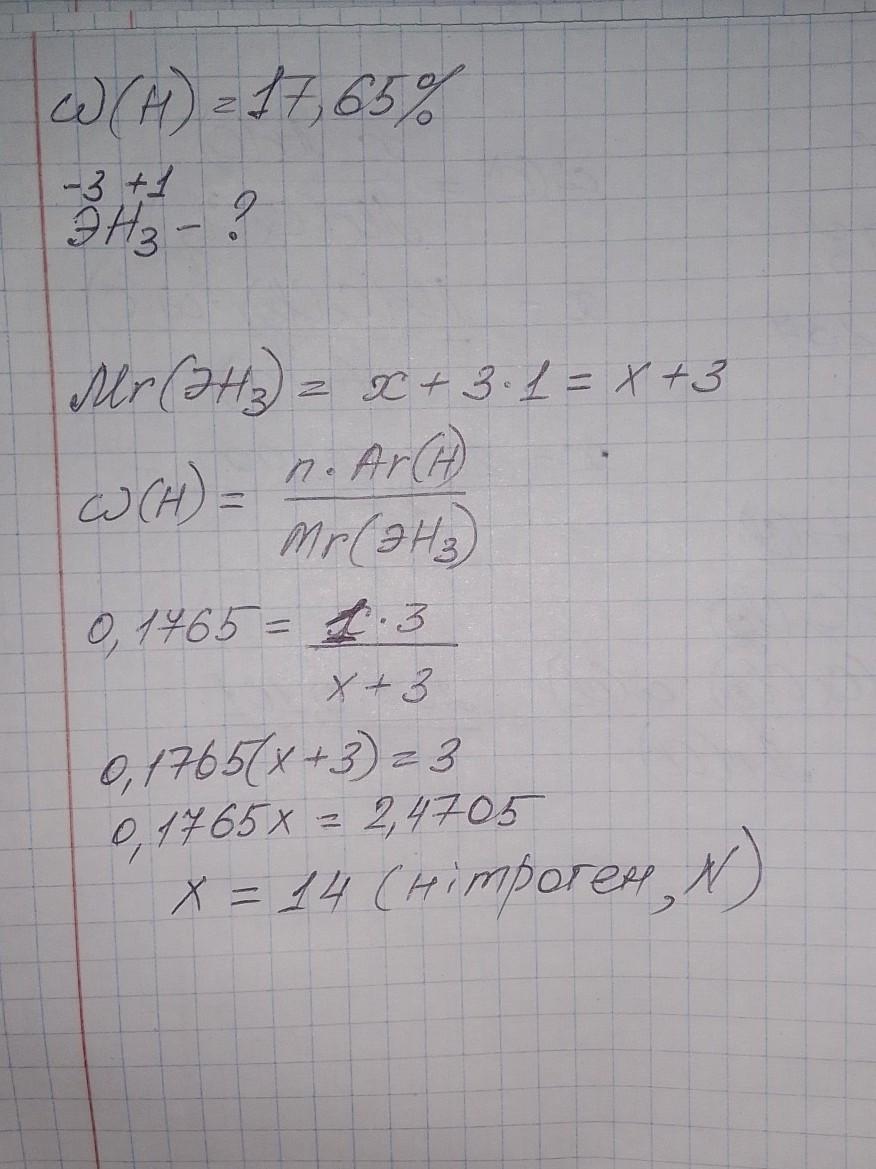 ω(H) = 17,65%
-3 +1
ЭH₃ - ?
Mr(ЭH₃) = x + 3·1 = x + 3
ω(H) = n·Ar(H) / Mr(ЭH₃)
0,1765 = 1·3 / x + 3
0,1765(x + 3) = 3
0,1765x = 2,4705
x = 14 (нітроген, N)